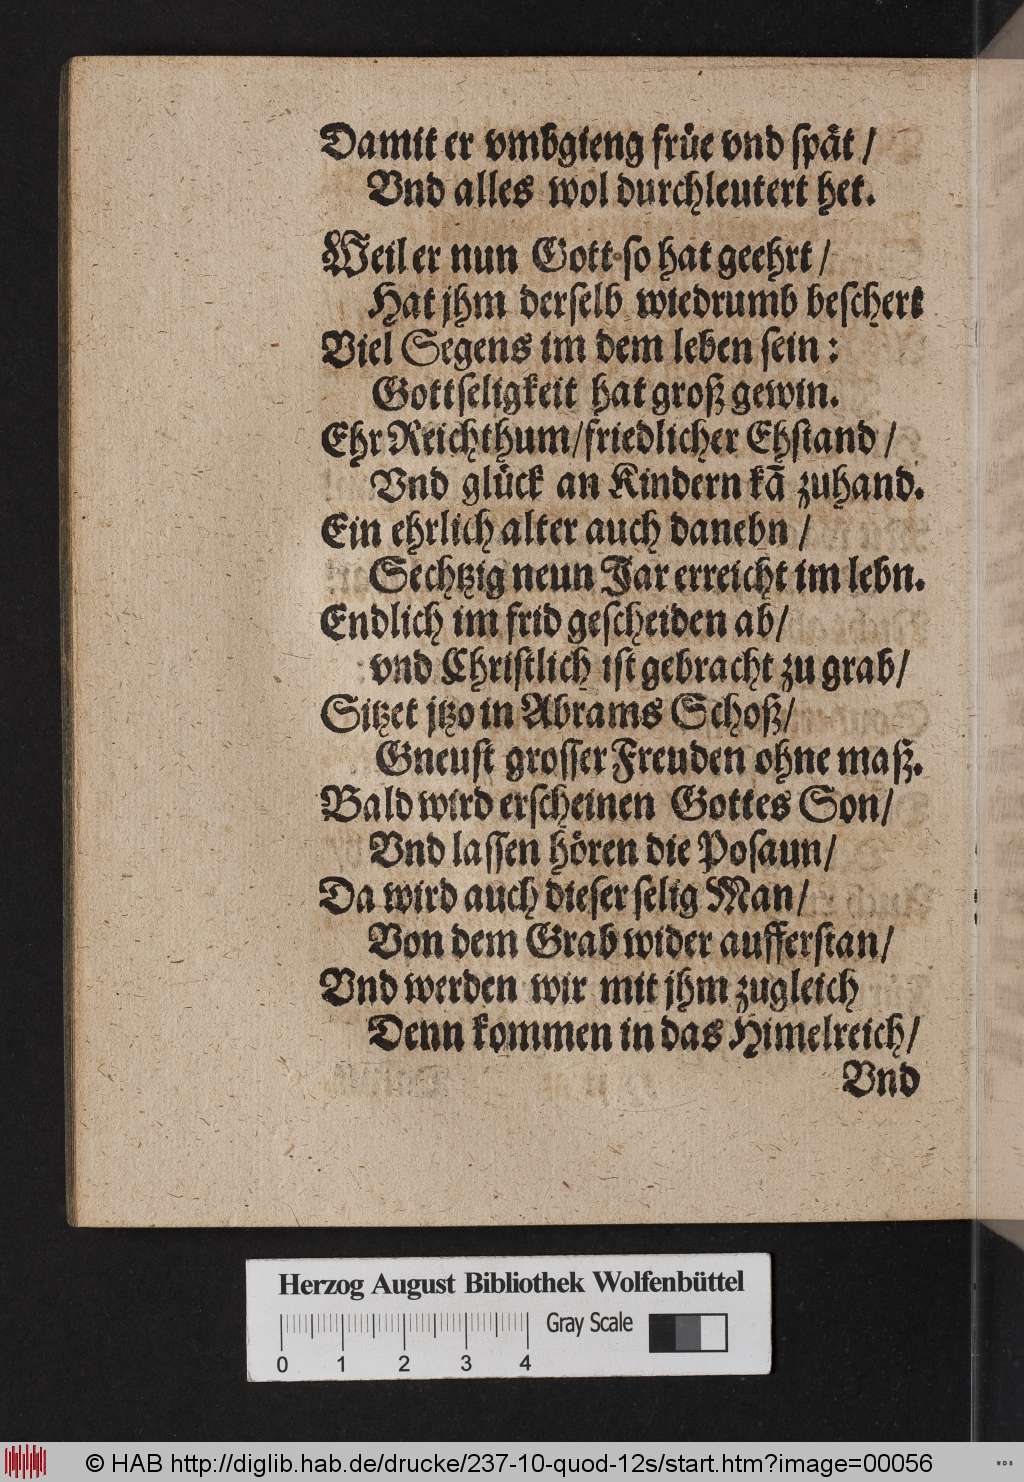 Damit er vmbgieng früe vnd spät /
Vnd alles wol durchleutert het.
Weil er nun Gott so hat geehrt /
Hat jhm derselb wiedrumb beschert
Viel Segens im dem leben sein :
Gottseligkeit hat groß gewin.
Ehr Reichthum/friedlicher Ehstand /
Vnd glück an Kindern kã zuhand.
Ein ehrlich alter auch danebn /
Sechtzig neun Jar erreicht im lebn.
Endlich im frid gescheiden ab/
vnd Christlich ist gebracht zu grab/
Sitzet jtzo in Abrams Schoß/
Gneust grosser Freuden ohne maß.
Bald wird erscheinen Gottes Son/
Vnd lassen hören die Posaun/
Da wird auch dieser selig Man/
Von dem Grab wider aufferstan/
Vnd werden wir mit jhm zugleich
Denn kommen in das Himelreich/
Vnd
Herzog August Bibliothek Wolfenbüttel
Gray Scale
0 1 2 3 4
© HAB http://diglib.hab.de/drucke/237-10-quod-12s/start.htm?image=00056